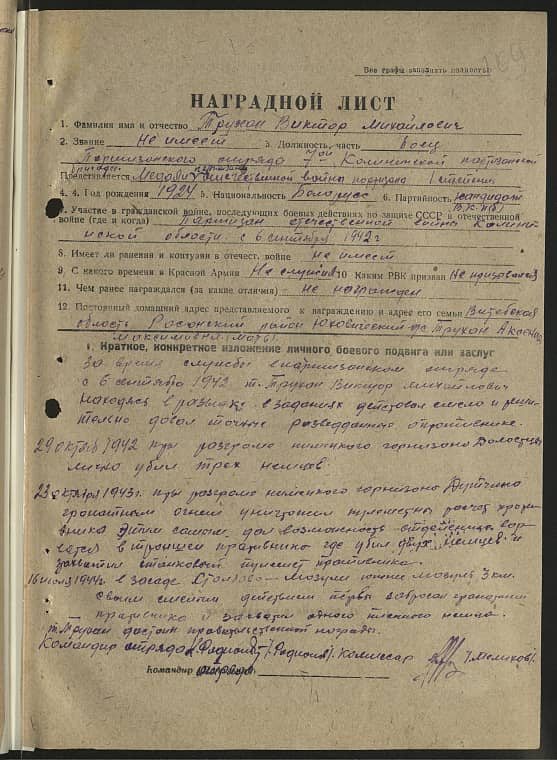 Все графы заполнять полностью
169
НАГРАДНОЙ ЛИСТ
1. Фамилия имя и отчество Трухан Виктор Михайлович
2. Звание Не имеет 3. Должность, часть Боец
Партизанского отряда 7ой Калининской партизанской
бригады
Представляется Медаль Отечественной войны партизана I степени
4. 4. Год рождения 1924 5. Национальность Белорусс 6. Партийность кандидат
В.К.П(б)
Участие в гражданской войне, последующих боевых действиях по защите СССР и отечественной
войне (где и когда) Партизан отечественной война Калинин-
нской области с 6 сентября 1942 г
8. Имеет ли ранения и контузии в отечест. войне не имеет
9. С какого времени в Красной Армии Не служил 10 Каким РВК призван Не призывался
11. Чем ранее награжден (за какие отличия) не награжден
12. Постоянный домашний адрес представляемого к награждению и адрес его семьи Витебская
область Росонский район Юховический с/с Трухан Аксенья
Максимовна (мать)
I. Краткое, конкретное изложение личного боевого подвига или заслуг
За время службы в партизанском отряде
с 6 сентября 1942 т. Трухан Виктор Михайлович
находясь в разведке в заданиях действовал смело и реши-
тельно давал точные разведданные о противнике.
29 октября 1942 при разгроме немецкого гарнизона
лично убил трех немцев.
23 октября 1943г. при разгроме немецкого гарнизона
гранатным огнем уничтожил пулеметный расчет против-
ника этим самым дал возможность отделению вор-
ватся в траншеи противника где убил двух немцев и
захватил станковый пулемет противника.
16 июля 1944г в засаде 3 км.
своим смелым действием первы забросал гранатами
противника и захватил одного пленного немца.
т. Трухан достоин правительственной награды.
Командир отряда /Родионов/ Комиссар /Меликов/.
Командир